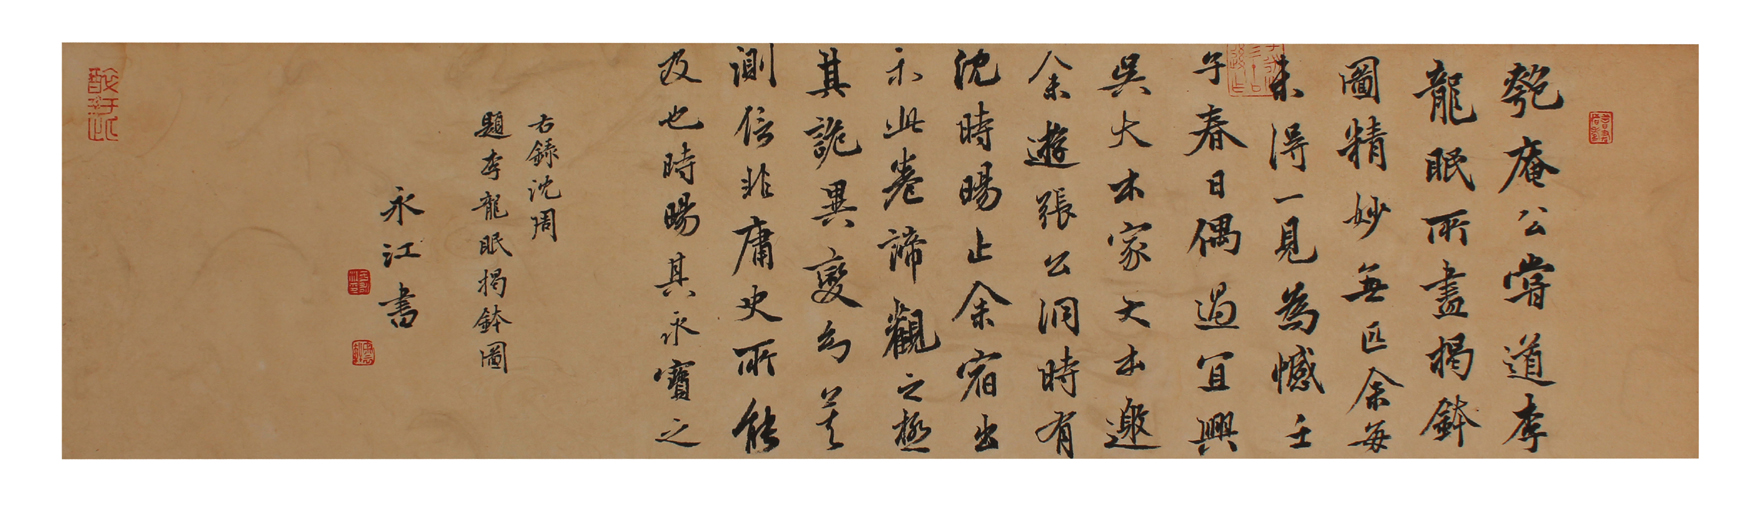 匏庵公嘗道李
龍眠所畫揭鉢
圖精妙無匹余每
未得一見為憾壬
子春日偶過宜興
吳大本家大本邀
余遊張公洞時有
沈時暘止余宿出
示此卷諦觀之極
其詭異變幻莫
測信非庸史所能
及也時暘其永寶之
右錄沈周
題李龍眠揭鉢圖
永江書